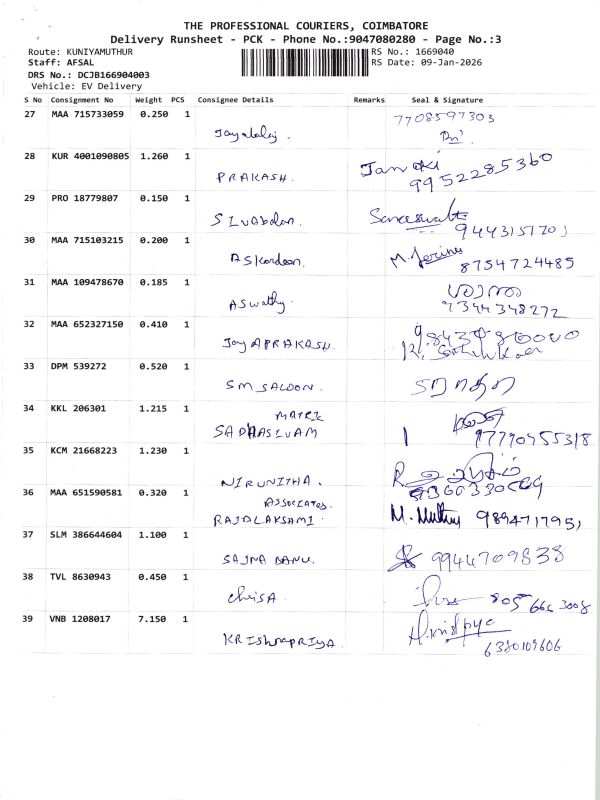 THE PROFESSIONAL COURIERS, COIMBATORE
Delivery Runsheet - PCK - Phone No.:9047080280 - Page No.:3
Route: KUNIYAMUTHUR RS No.: 1669040
Staff: AFSAL RS Date: 09-Jan-2026
DRS No.: DCJB166904003
Vehicle: EV Delivery
S No Consignment No Weight PCS Consignee Details Remarks Seal & Signature
27 MAA 715733059 0.250 1 7708597303
28 KUR 4001090805 1.260 1 Janaki
PRAKASH. 9952285360
29 PRO 18779807 0.150 1
SIVABalan. 9443151701
30 MAA 715103215 0.200 1
8754724485
31 MAA 109478670 0.185 1
ASwathy. 9344348272
32 MAA 652327150 0.410 1
JayAPRAKASH.
33 DPM 539272 0.520 1
SM SALOON.
34 KKL 206301 1.215 1 MATRIC
SADHASIVAM
35 KCM 21668223 1.230 1
NIRUNITHA.
36 MAA 651590581 0.320 1 ASSOCIATES.
RAJALAKSAMI. M. Muthu
37 SLM 386644604 1.100 1
SAJNA BANU. 9944709838
38 TVL 8630943 0.450 1
805 666 3008
39 VNB 1208017 7.150 1
KRIShnAPRIYA. 6380109606